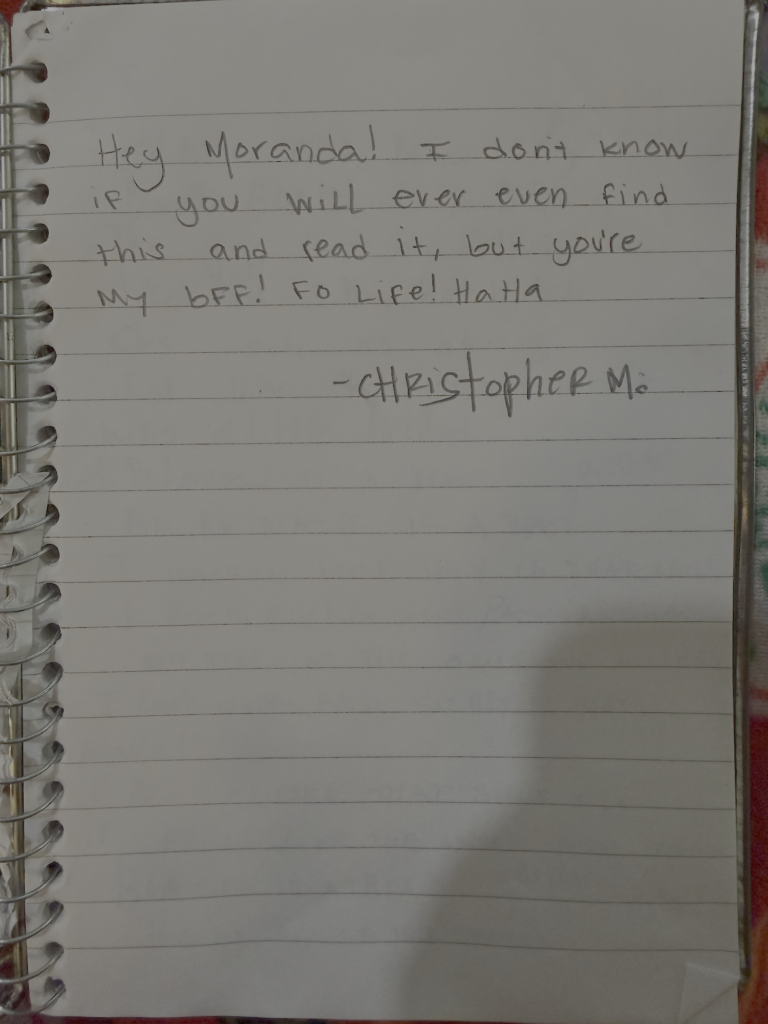 Hey Moranda! I don't know
if you will ever even find
this and read it, but you're
My bFF! Fo Life! HaHa
-CHRistopheR M.